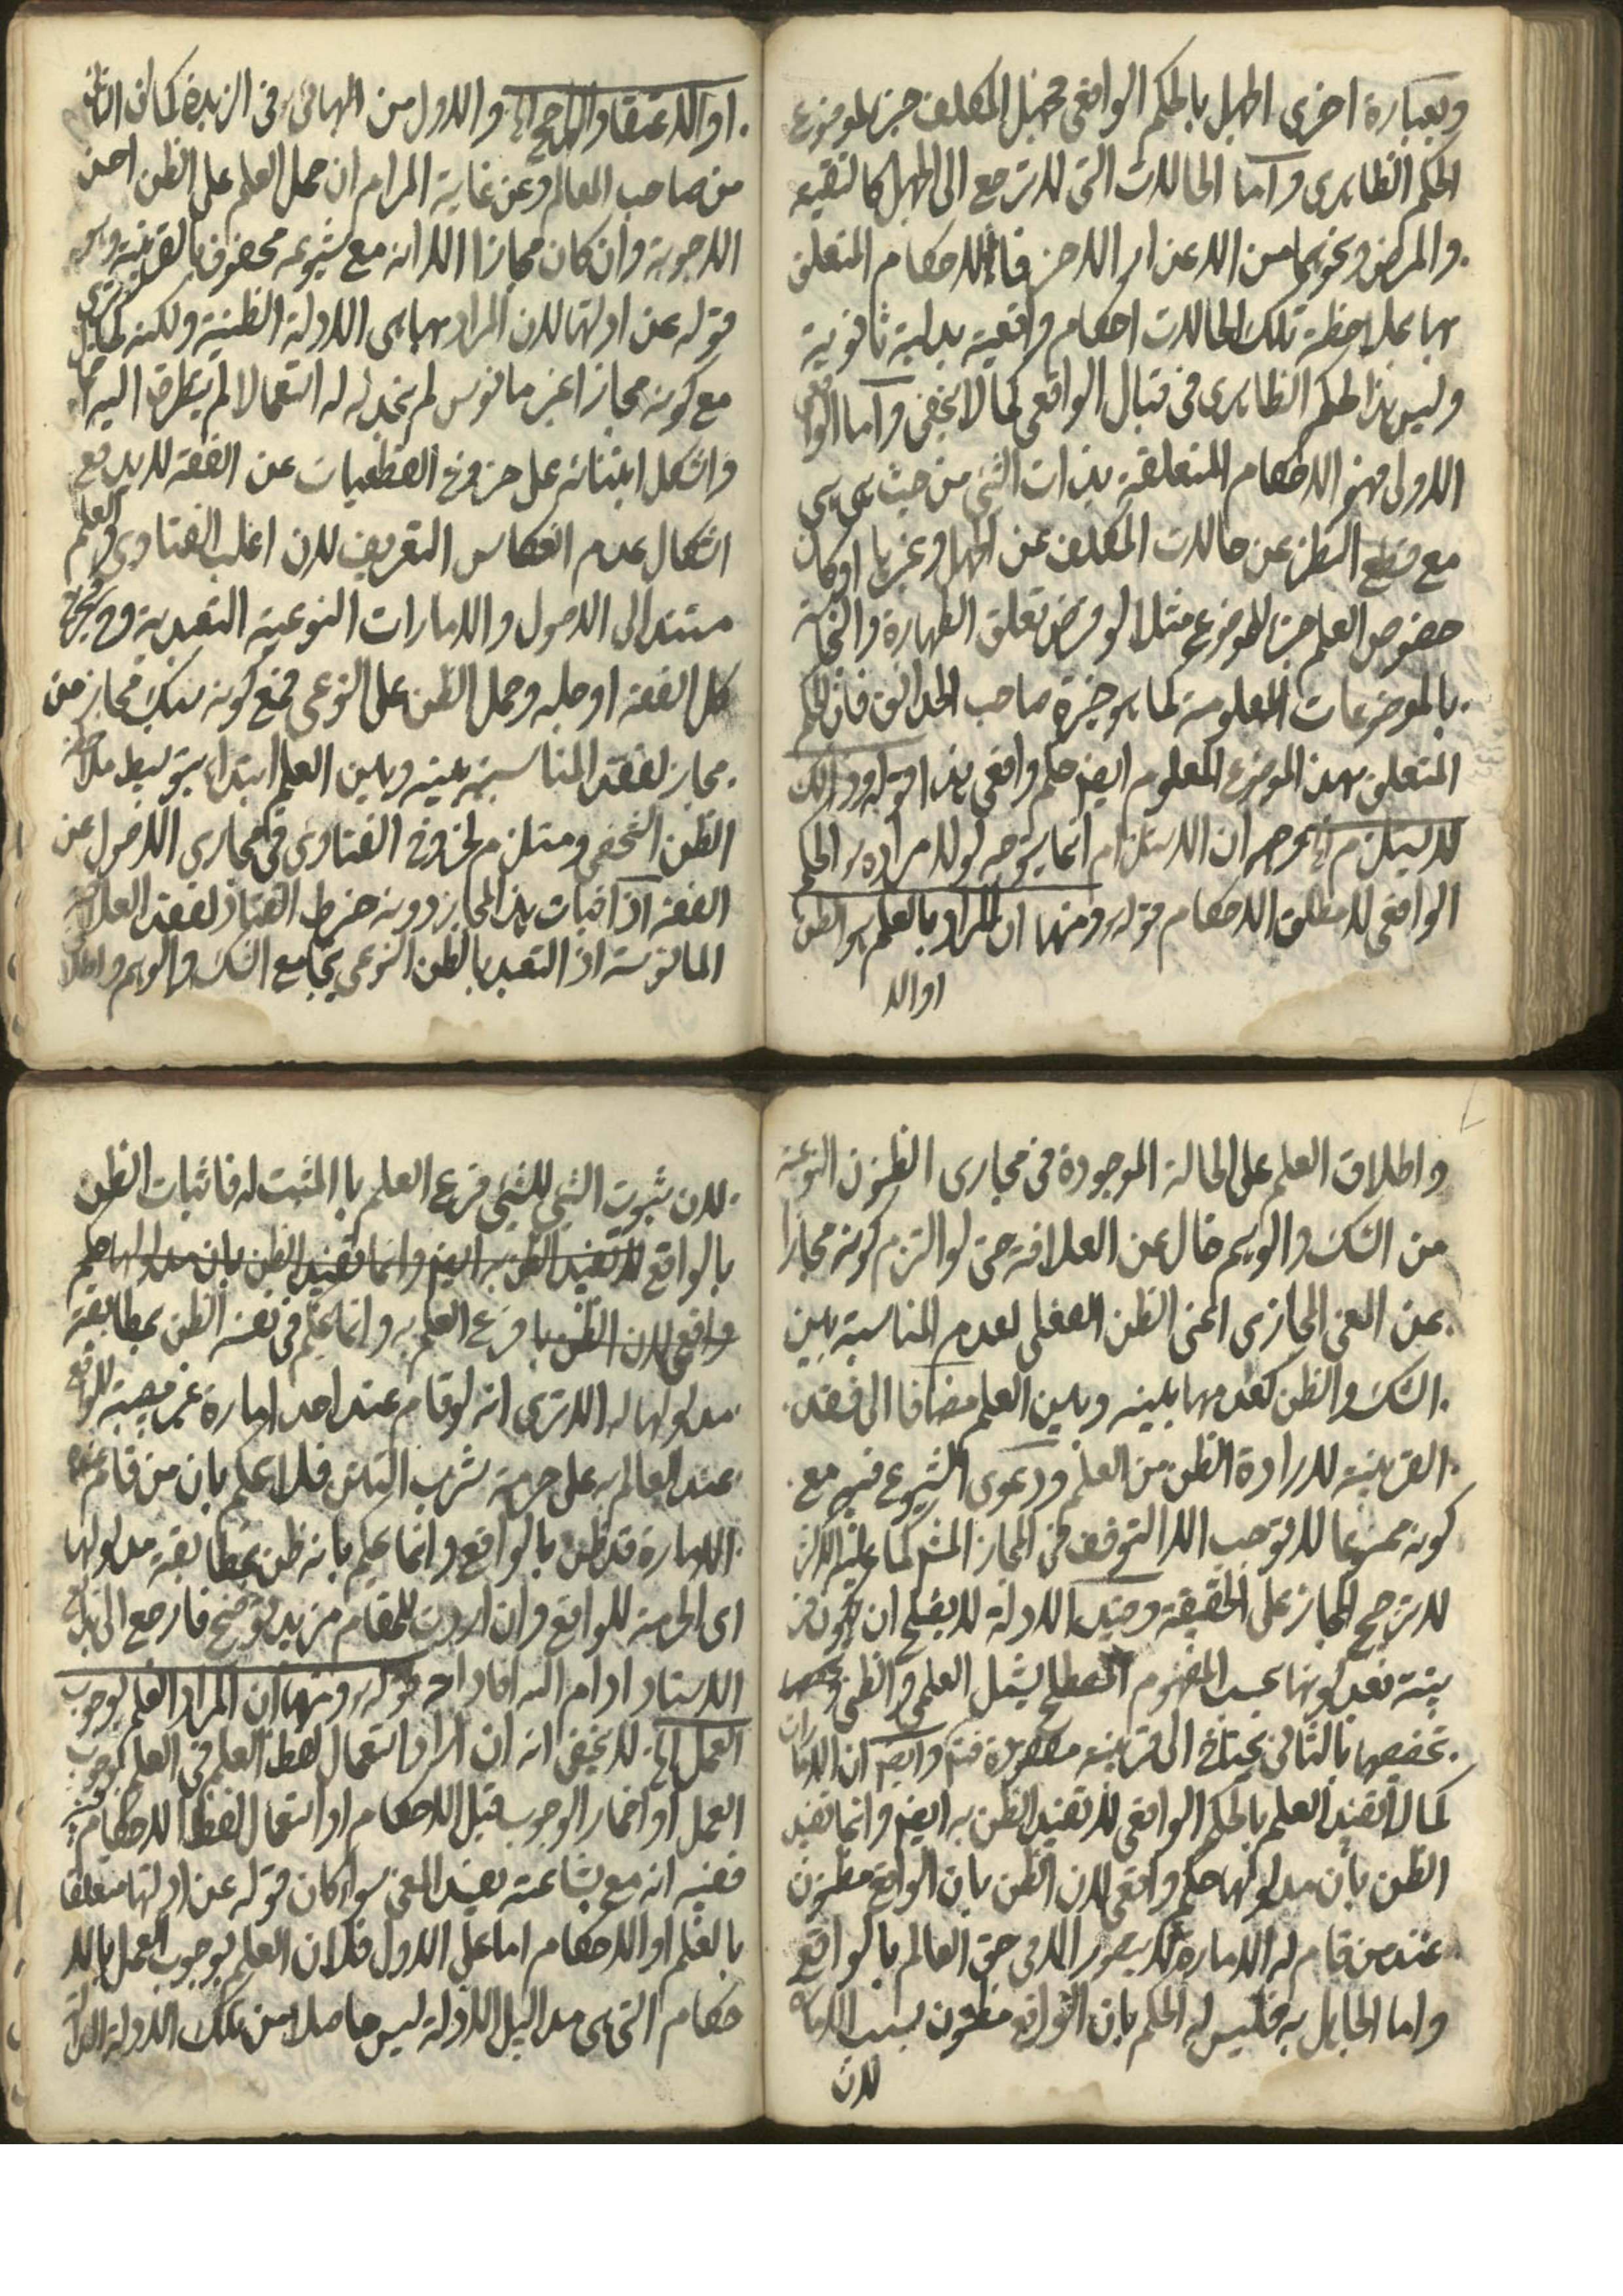 وبعبارة اخرى الجهل بالحكم الواقعى فجهل المكلف جزء لموضوع
الحكم الظاهرى واما الحالات التى لا ترجع الى الجهل كالتقية
والمرض ونحوهما من الاعذار الاخر فالاحكام المتعلق
بها بملاحظة تلك الحالات احكام واقعية بدلية ثانوية
وليس هذا الحكم الظاهرى فى قبال الواقعى كما لا يخفى واما الواقعى
الاولى فهو الاحكام المتعلقة بذات الشئ من حيث هى هى
مع قطع النظر عن حالات المكلف عن الجهل وغيرها او كان
خصوص العلم جزء للموضوع مثلا لو فرض تعلق الطهارة والنجاسة
بالموضوعات المعلومة كما هو خيرة صاحب الحدائق فان الحكم
المتعلق بهذا الموضوع المعلوم ايضا حكم واقعى هذا قوله وذلك
لا يستلزم الخ وجهه ان الاستلزام انما يتوجه لولا مراده الحكم
الواقعى لا مطلق الاحكام قوله ومنها ان المراد بالعلم هو الظن
او الا
او الاعتقاد الراجح الخ والاول من البهائى فى الزبدة كما ان الثانى
من صاحب المعالم وعن غاية المرام ان حمل العلم على الظن احسن
الاجوبة وان كان مجازا الا انه مع شيوعه محفوف بالقرينة وهى
قوله عن ادلتها لان المراد بها هى الادلة الظنية ولكنه كما ترى
مع كونه مجازا غير مانوس لم نجد له استعمالا لم يتطرق اليه
واشكل ابتنائه على خروج القطعيات عن الفقه لا يدفع
اشكال عدم انعكاس التعريف لان اغلب الفتاوى والعلم
مستند الى الاصول والامارات النوعية التعبدية وح يخرج
كل الفقه او جله وحمل الظن على النوعى فمع كونه سبك مجاز من
مجاز لفقد المناسبة بينه وبين العلم ابتداء بتوسيط ملاحظة
الظن الشخصى ومستلزم لخروج الفتاوى فى مجارى الاصول عن
الفقه اذ اثبات هذا المجاز دونه خرط القتاد لفقد العلاقة
المانوسة اذ التعبد بالظن النوعى يجامع الشك والوهم واطلاق
واطلاق العلم على الحالة الموجودة فى مجارى الظنون النوعية
من الشك والوهم خال عن العلاقة حتى لو التزم كونه مجازا
عن المعنى المجازى اعنى الظن الفعلى لعدم المناسبة بين
الشك والظن كعدمها بينه وبين العلم مضافا الى فقد
القرينة لارادة الظن من العلم ودعوى الشيوع فيه مع
كونه ممنوعا لا توجب الا التوقف فى المجاز المشهور كما عليه الاكثر
لا ترجيح المجاز على الحقيقة وضيف الادلة لا يصلح ان يكون قر
ينة فبعد كونها بحسب المفهوم المصطلح يشمل العلمى والظنى
تخصيصها بالثانى يحتاج الى قرينة مفقودة فتم وايضا ان الامارات
كما لا تفيد العلم بالحكم الواقعى لا تفيد الظن به ايضا وانما تفيد
الظن بان مدلولها حكم واقعى لان الظن بان الواقع مظنون
عند من قام له الامارة لا يتصور الا فى حق العالم بالواقع
واما الجاهل به فليس له الحكم بان الواقع مظنون بسبب الامارة
لان
لان ثبوت الشئ للشئ فرع العلم بالمثبت له فاثبات الظن
بالواقع لا تفيد الظن به ايضا وانما تفيد الظن بان مدلولها حكم
واقعى لان الظن با فرع العلم به وانما يحكم فى نفسه الظن بمطابقة
مدلولها له الا ترى انه لو قام عند احد امارة غير مصيبة للواقع
عند العالم به على حرمة شرب التتن فلا يحكم بان من قام عنده
الامارة قد ظن بالواقع وانما يحكم بانه ظن بمطابقة مدلولها
اى الحرمة للواقع وان اردت للمقام مزيد توضيح فارجع الى بدايع
الاستاد ادام الله افاداته قوله ومنها ان المراد العلم بوجوب
العمل الخ لا يخفى انه ان اراد استعمال لفظ العلم فى العلم بوجوب
العمل او اضمار الوجوب قبل الاحكام او استعمال لفظ الاحكام
ففيه انه مع بشاعته يفيد المعنى سواء كان قوله عن ادلتها متعلقا
بالعلم او الاحكام اما على الاول فلان العلم بوجوب العمل بالا
حكام التى هى مداليل الادلة ليس حاصلا من تلك الادلة